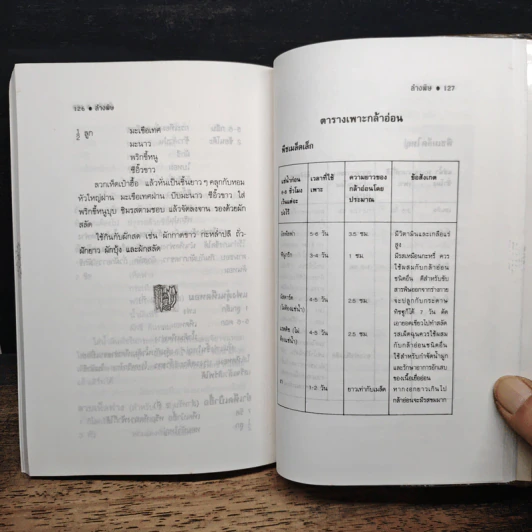 126 ● ล้างพิษ
½ ลูก มะเขือเทศ
มะนาว
พริกขี้หนู
ซีอิ๊วขาว
ลวกเห็ดเป๋าฮื้อ แล้วหั่นเป็นชิ้นยาว ๆ คลุกกับหอม
หัวใหญ่ผ่าน มะเขือเทศผ่าน บีบมะนาว ซีอิ๊วขาว ใส่
พริกขี้หนูบุบ ชิมรสตามชอบ แล้วจัดลงจาน รองด้วยผัก
สลัด
ใช้กินกับผักสด เช่น ผักกาดขาว กะหล่ำปลี ถั่ว
ฝักยาว ผักบุ้ง และผักสลัด
ล้างพิษ ● 127
ตารางเพาะกล้าอ่อน
พืชเมล็ดเล็ก
เวลาที่ใช้
เพาะ
ความยาวของ
กล้าอ่อนโดย
ประมาณ
ข้อสังเกต
วัน
3.5 ซม.
มีวิตามินและเกลือแร่
สูง
วัน
1 ซม.
มีรสเหมือนกะหรี่ ควร
ใช้ผสมกับกล้าอ่อน
ชนิดอื่น ดีสำหรับขับ
สารพิษออกจากร่างกาย
4-5 วัน
2.5 ซม.
จะปลูกกับกระดาษ
ทิชชูก็ได้ 7 วัน ตัด
เอายอดเขียวไปทำสลัด
4-5 วัน
2.5 ซม.
รสเผ็ดฉุนควรใช้ผสม
กับกล้าอ่อนชนิดอื่น
ใช้สำหรับกำจัดน้ำมูก
และรักษาอาการอักเสบ
ของเนื้อเยื่ออ่อน
งา
1-2 วัน
ยาวเท่ากับเมล็ด
หากงอกยาวเกินไป
กล้าอ่อนจะมีรสขมมาก